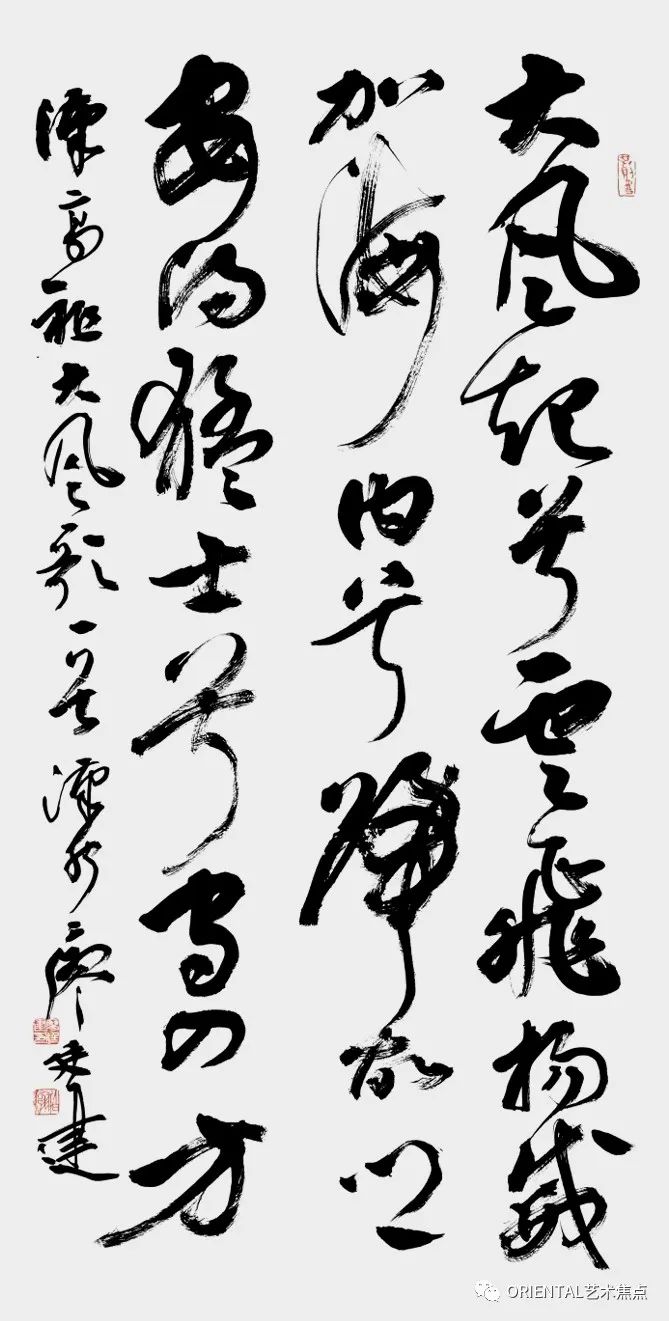 大風起兮雲飛揚威
加海内兮歸故鄉
安得猛士兮守四方
漢高祖大風歌一首 廖 建
ORIENTAL艺术焦点